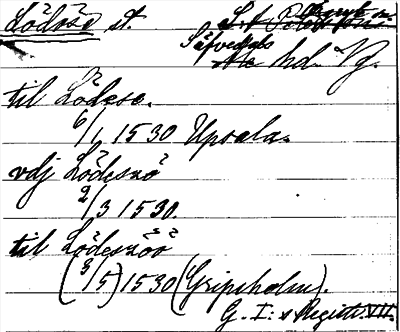 Lödöse st. S:t Peders sn.
Säfvedals
Ale hd. Vg.
til Lödese.
6/1 1530 Upsala.
vdj Lödeszö
2/3 1530.
til Lödeszöö
(3/5) 1530 (Gripsholm).
G. I:s Registr. VII.